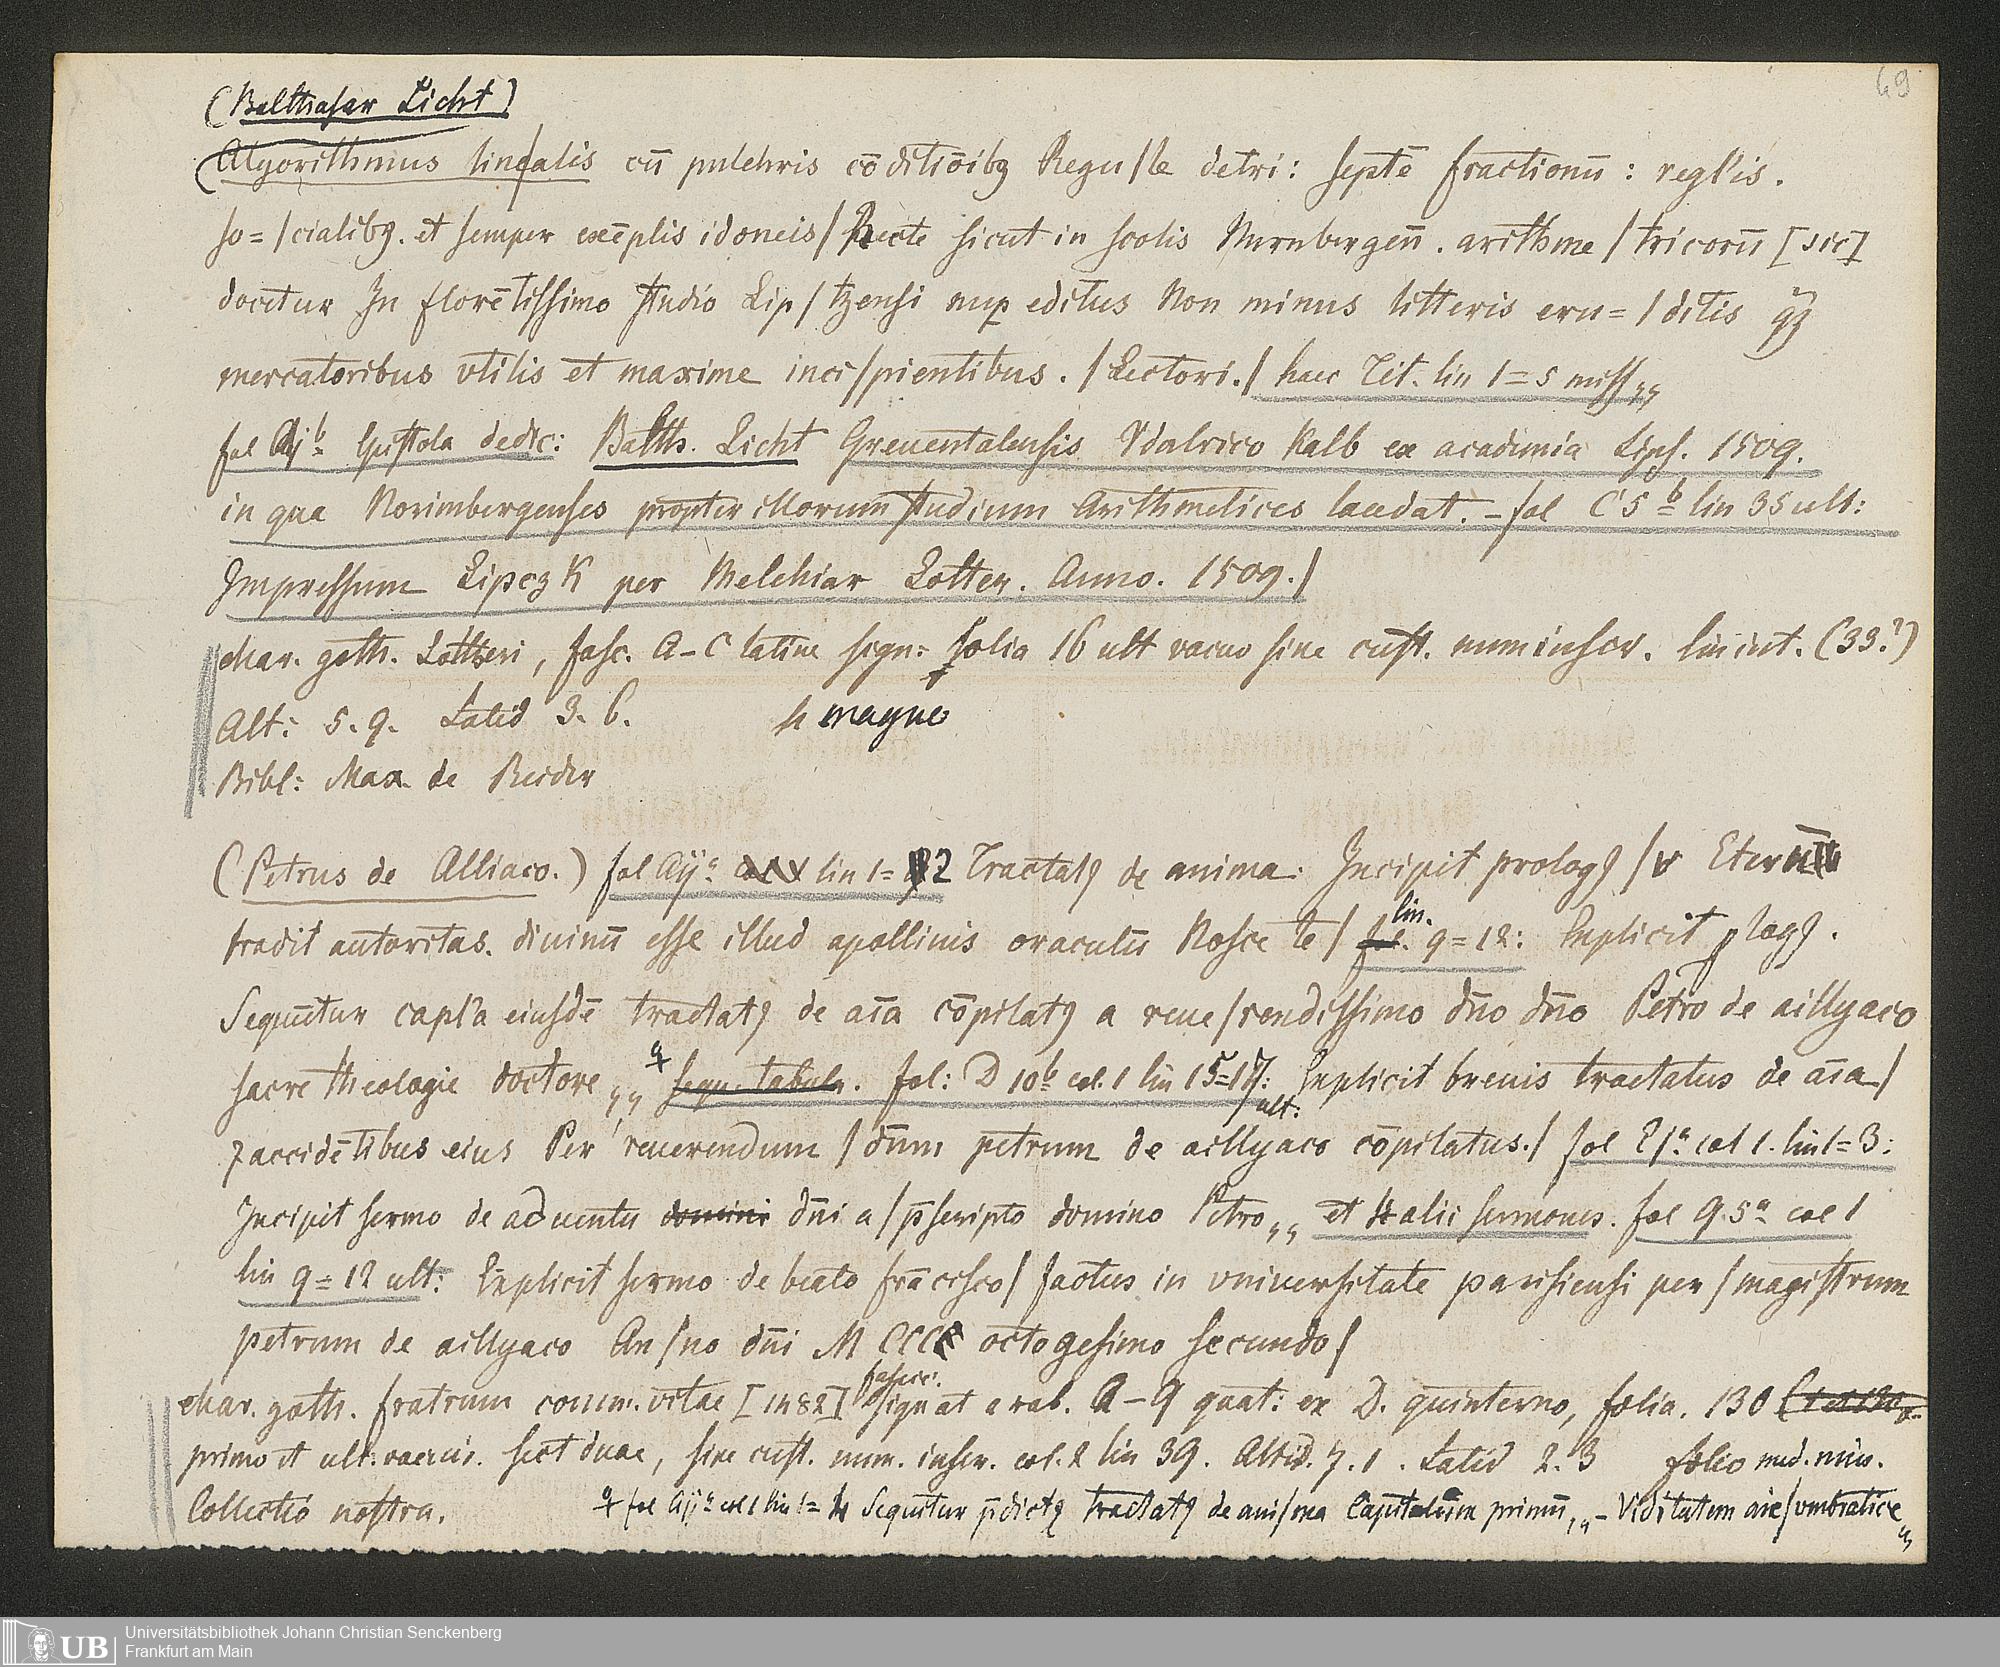 69
(Balthasar Licht)
(Algorithmus linealis cū pulchris cōditiōibꝫ Regu/le detri: septē fractionū: regl'is.
so=/cialibꝫ. et semper exēplis idoneis/ Recte sicut in scolis Nurnbergeñ. arithme/tricorū [sic]
docetur In florētissimo studio Lip/tzensi nup editus Non minus litteris eru=/ditis qꝫ
mercatoribus vtilis et maxime inci/pientibus. /Lectori./ haec Tit. lin 1=5 miss„
fol Aj b Epistola dedic: Balth. Licht Greuentalensis Vdalrico Kalb ex academia Lips. 1509.
in qua Norimbergenses propter illorum studium Arithmetices laudat. – fol C5 b lin 35 ult:
Impressum Lipczk per Melchiar Lotter. Anno. 1509./
char. goth. Lotteri, fasc. A–C latine sign: folia 16 ult vacuo sine cust. num inscr. lin int. (33?)
Alt: 5. 9. Latid 3. 6. 4 magno
Bibl: Max. de Reider
(Petrus de Alliaco.) fol Aij a lin 1=2 Tractatꝫ de anima. Incipit prologꝫ /
tradit autoritas. diuinū esse illud apollinis oraculū Nosce te/ lin. 9=12: Explicit plogꝫ.
Sequūtur capl'a eiusdē tractatꝫ de aīa cōpilatꝫ a reue/rendissimo dño dño Petro de aillyaco
sacre theologie doctore„ sequ. tabula. fol: D 10 b col. 1 lin 15=17: Explicit breuis tractatus de aīa/
ult:
accidētibus eius Per reuerendum /dūm petrum de aillyaco cōpilatus./ fol E1 a col 1. lin 1=3:
Incipit sermo de aduentu domini dñi a/p̄scripto domino Petro„ et alii sermones. fol Q 5 a col 1
lin 9=12 ult: Explicit sermo de beato frācisco/ factus in vniuersitate parisiensi per /magistrum
petrum de aillyaco An/no dñi MCCCC octogesimo secundo/
char. goth. fratrum comm. vitae [1482] fascic. signat arab. A–Q quat: ex D. quinterno, folia. 130
primo et ult: vacuis. sect duae, sine cust. num. inscr. col. 2 lin 39. Altid. 7. 1. Latid 2. 3 folio med. min.
Collectio nostra. fol Aij a col 1 lin 1=4 Sequitur p̄dictꝫ tractatꝫ de ani/ma Capitulum primū„ –
Universitätsbibliothek Johann Christian Senckenberg
UB
Frankfurt am Main